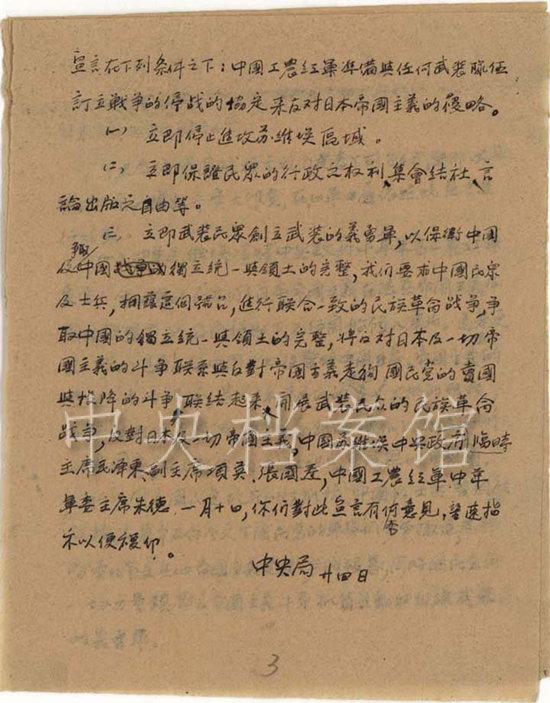 宣言在下列条件之下：中國工农红軍準備與任何武装隊伍
訂立戰爭的停战的協定来反对日本帝國主義的侵略。
(一) 立即停止進攻苏維埃區域。
(二) 立即保證民眾的行政之权利、集會結社、言
論出版之自由等。
(三) 立即武装民眾創立武装的義勇軍，以保衛中國
及中國獨立統一與領土的完整，我们要求中國民眾
及士兵，拥護這個号召，進行联合一致的民族革命战爭，爭
取中國的獨立統一與領土的完整，將反对日本及一切帝
國主義的斗爭联系與反對帝國主義走狗國民党的賣國
與投降的斗爭联结起来，開展武装民众的民族革命
战爭，反對日本及一切帝国主義，中國苏維埃中央政府臨時
主席毛泽東、副主席項英、張國燾，中國工農红軍中革
軍委主席朱德 一月十日，你们對此宣言有何意見，望速指
示以便复印。
中央局 廿四日
3
中央档案馆